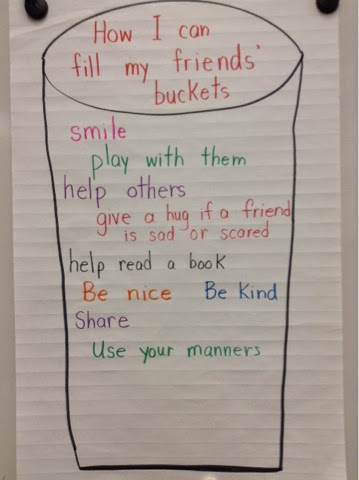 How I can
fill my friends'
buckets
smile
play with them
help others
give a hug if a friend
is sad or scared
help read a book
Be nice Be Kind
Share
Use your manners